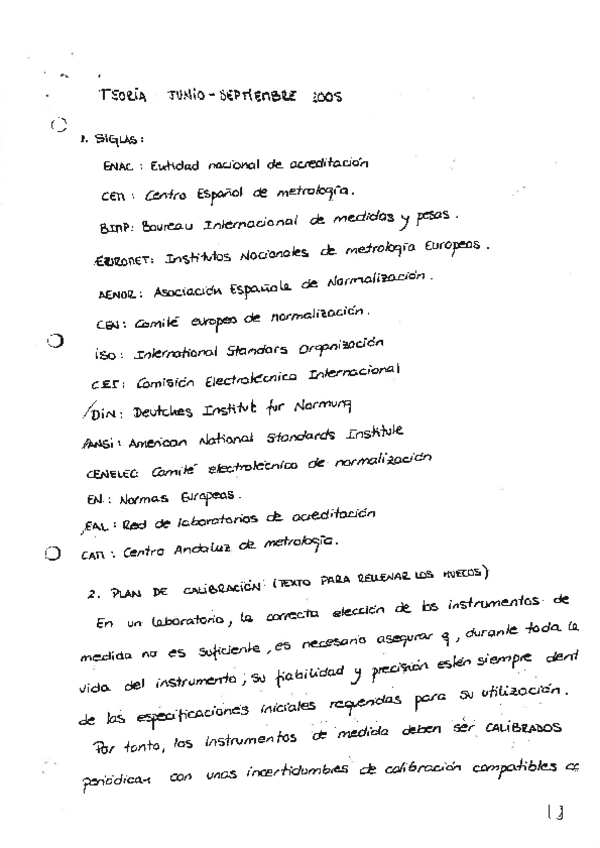 TEORÍA JUNIO - SEPTIEMBRE 2005
1. SIGLAS:
ENAC: Entidad nacional de acreditación
CEM: Centro Español de metrología.
BIMP: Boureau Internacional de medidas y pesas.
EUROMET: Institutos Nacionales de metrología Europeos.
AENOR: Asociación Española de Normalización.
CEN: Comité europeo de normalización.
ISO: International Standars Organización
CEI: Comisión Electrotécnica Internacional
DIN: Deutches Institut fur Normung
ANSI: American National Standards Institute
CENELEC: Comité electrotécnico de normalización
EN: Normas Europeas.
EAL: Red de laboratorios de acreditación
CAM: Centro Andaluz de metrología.
2. PLAN DE CALIBRACIÓN (TEXTO PARA RELLENAR LOS HUECOS)
En un laboratorio, la correcta elección de los instrumentos de
medida no es suficiente, es necesario asegurar q, durante toda la
vida del instrumento, su fiabilidad y precisión estén siempre dent
de las especificaciones iniciales requeridas para su utilización.
Por tanto, los instrumentos de medida deben ser CALIBRADOS
periódica- con unas incertidumbres de calibración compatibles co
13